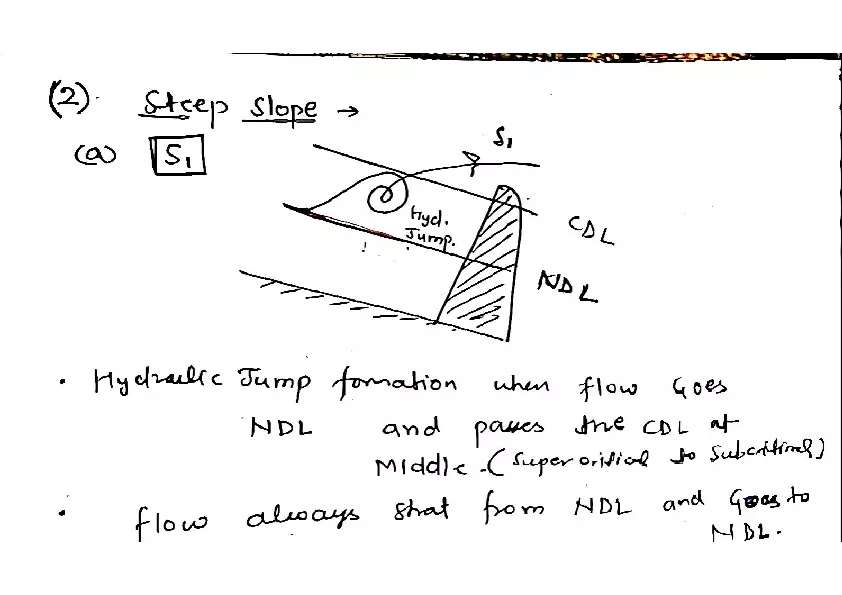 (2). Steep Slope →
(a) S₁
S₁
Hyd.
Jump.
CDL
NDL
• Hydraulic Jump formation when flow Goes
NDL and passes the CDL at
Middle. (Supercritical to Subcritical)
• flow always strat from NDL and Goes to
NDL.